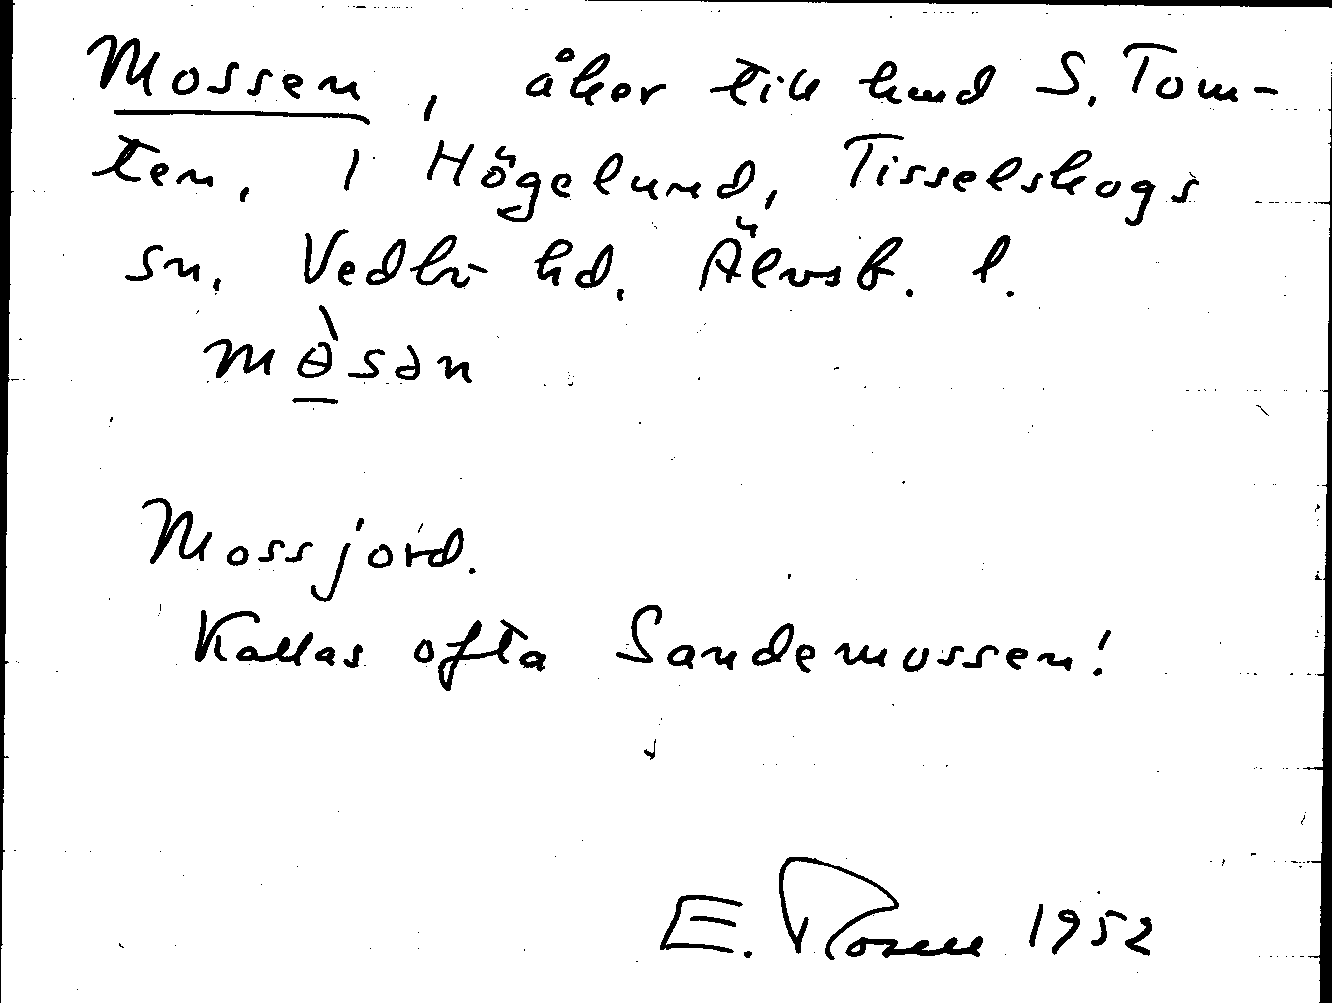 Mossen, åker till hmd S. Tom-
ten, 1 Högelund, Tisselskogs
sn, Vedbo hd. Älvsb. l.
mɵ̀sən
Mossjord.
Kallas ofta Sandemossen!
E. Rosell 1952